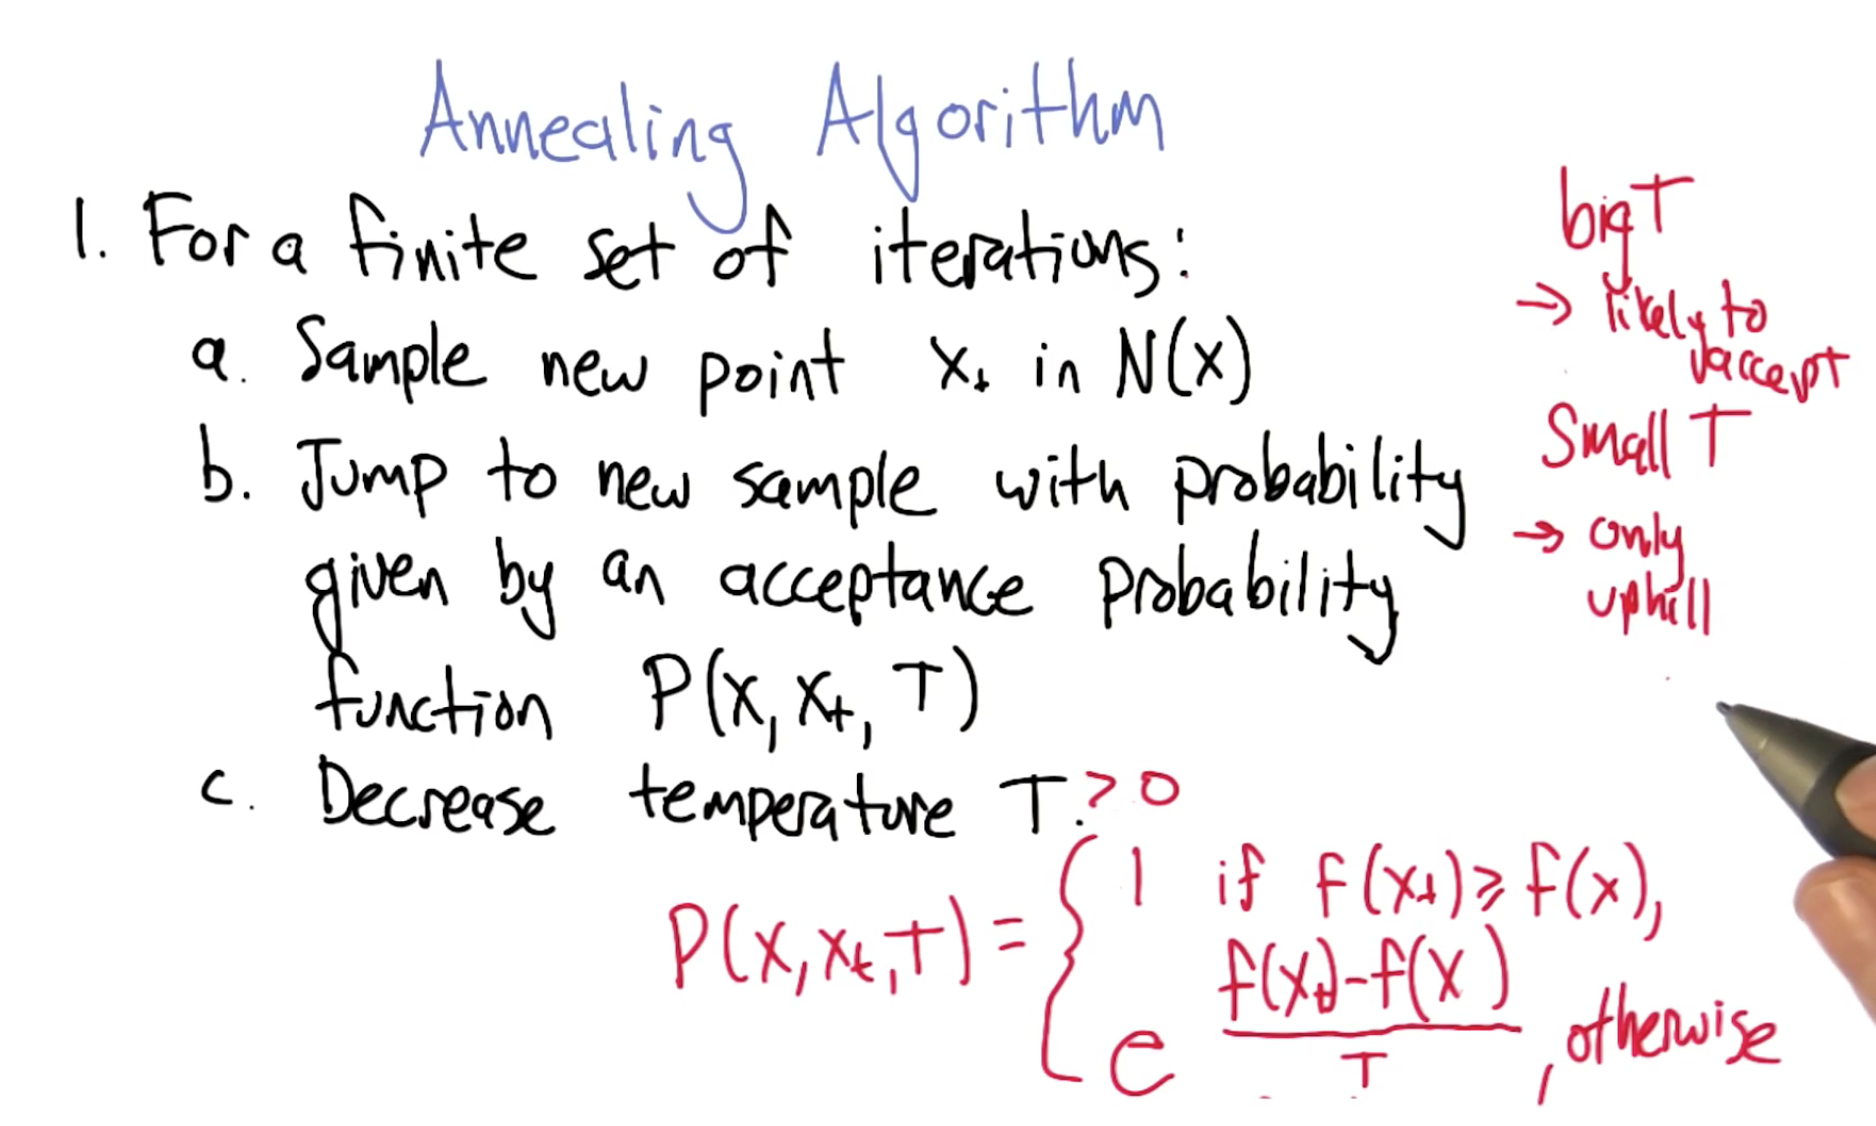 Annealing Algorithm
1. For a finite set of iterations:
a. Sample new point xₜ in N(x)
b. Jump to new sample with probability
given by an acceptance probability
function P(x, xₜ, T)
c. Decrease temperature T. > 0
P(x, xₜ, T) = { 1 if f(xₜ) ≥ f(x),
e^((f(xₜ) - f(x)) / T), otherwise
big T
→ likely to
accept
Small T
→ only
uphill